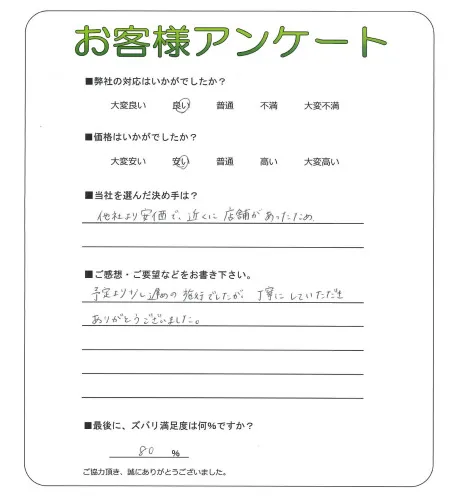 お客様アンケート
■弊社の対応はいかがでしたか？
大変良い 良い 普通 不満 大変不満
■価格はいかがでしたか？
大変安い 安い 普通 高い 大変高い
■当社を選んだ決め手は？
他社より安価で、近くに店舗があったため
■ご感想・ご要望などをお書き下さい。
予定より少し遅めの施行でしたが、丁寧にしていただき
ありがとうございました。
■最後に、ズバリ満足度は何％ですか？
80 %
ご協力頂き、誠にありがとうございました。